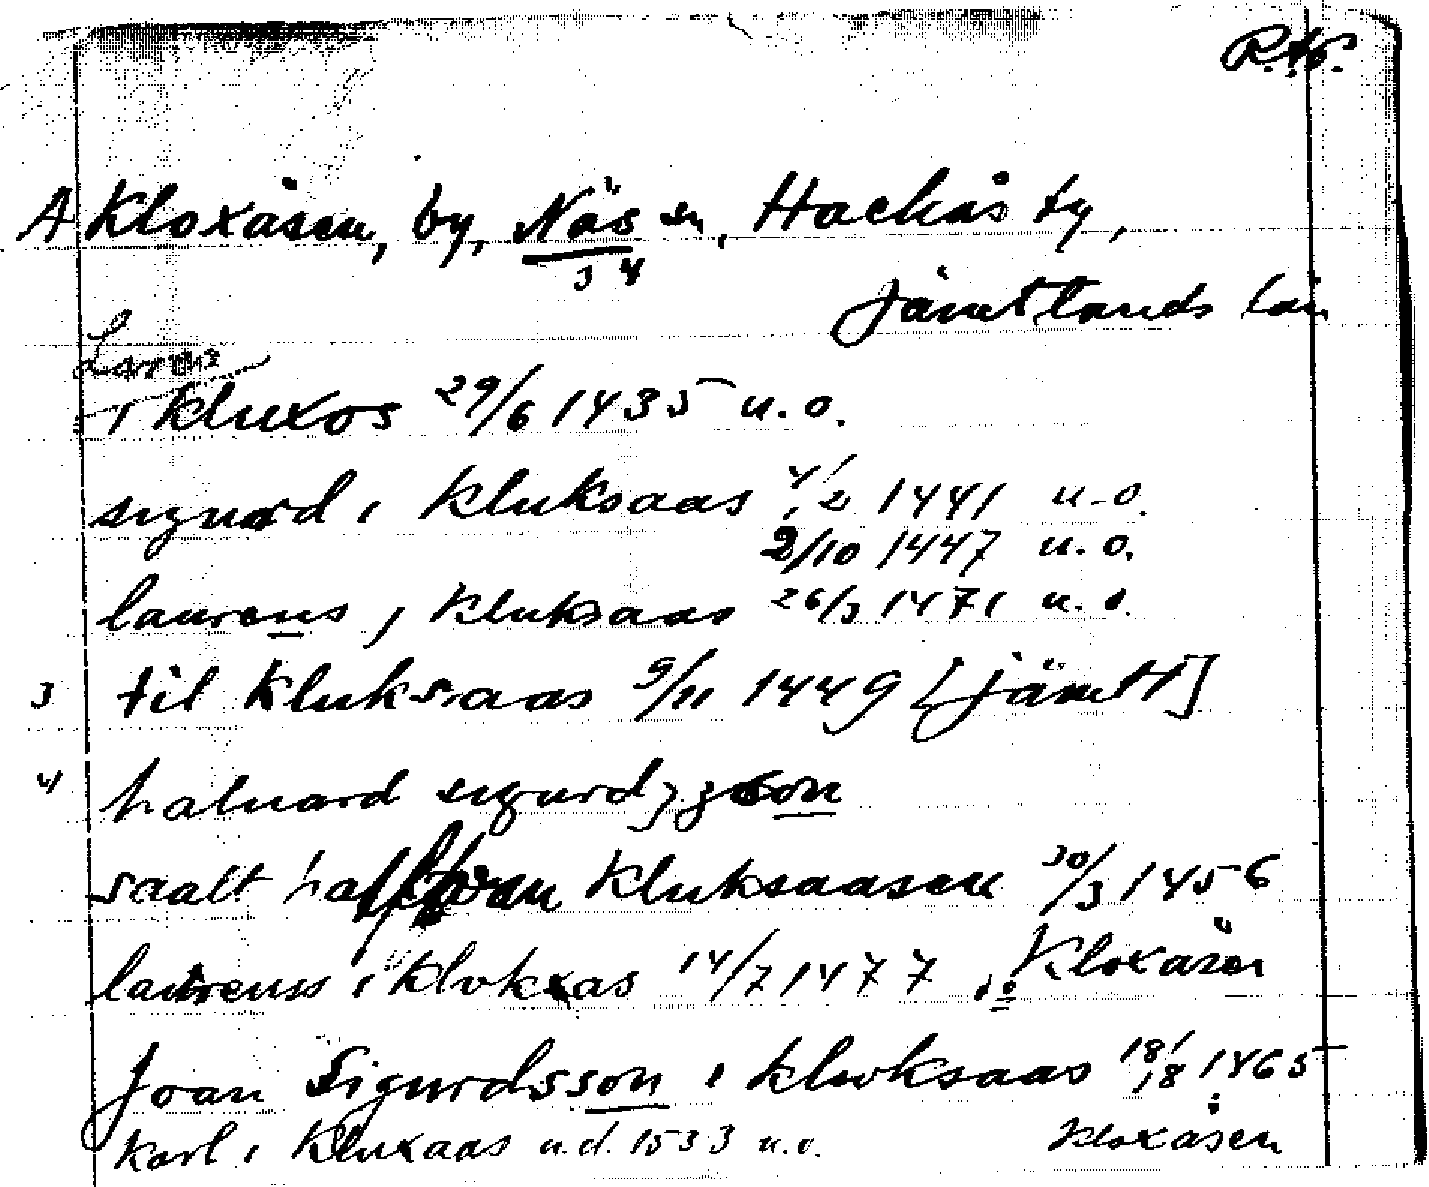 A Kloxåsen, by, Näs sn, Hackås tg,
3 4
Jämtlands län
Lares
i kluxos 29/6 1435 u.o.
sigurd i Kluksaas 4/2 1441 u.o.
2/10 1447 u.o.
laurens j Kluksaas 26/3 1471 u.o.
3 til Kluksaas 9/11 1449 [Jämtl]
4 haluard sigurdzson
saalt haffwan Kluksaasen 30/3 1456
laurenss i klokxas 14/7 1477 Kloxåsen
Joan Sigurdsson i kluksaas 18/8 1465
karl i Kluxaas u.d. 1533 u.o. Kloxåsen